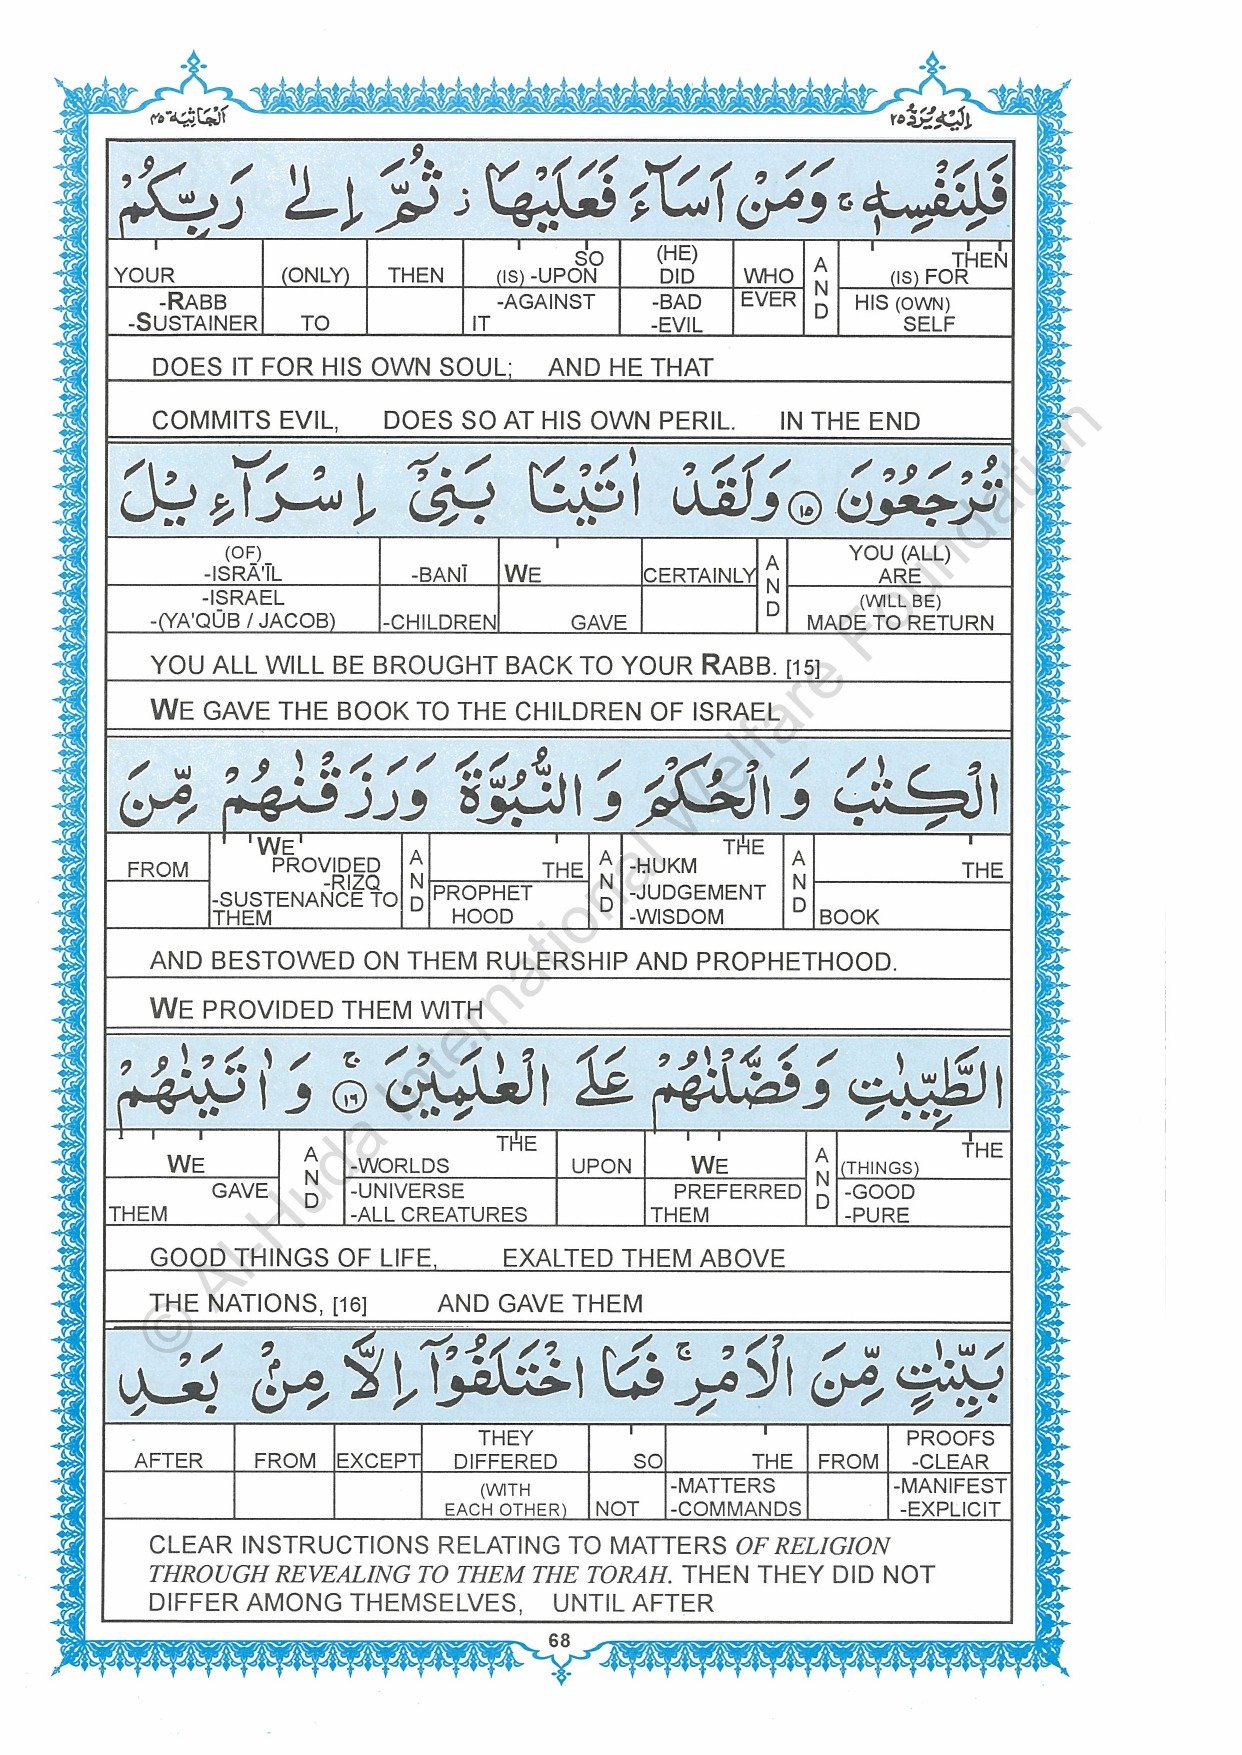 اَلْجَاثِيَة ٤٥
اِلَيْهِ يُرَدُّ ٢٥
فَلِنَفْسِهٖ ۚ وَمَنْ اَسَآءَ فَعَلَيْهَا ز ثُمَّ اِلٰى رَبِّكُمْ
YOUR (ONLY) THEN (IS) -UPON SO (HE) DID WHO AND (IS) FOR THEN
-RABB -SUSTAINER TO -AGAINST IT -BAD -EVIL EVER HIS (OWN) SELF
DOES IT FOR HIS OWN SOUL; AND HE THAT
COMMITS EVIL, DOES SO AT HIS OWN PERIL. IN THE END
تُرْجَعُوْنَ ١٥ وَلَقَدْ اٰتَيْنَا بَنِيْٓ اِسْرَآءِيْلَ
(OF) -ISRĀ'ĪL -BANĪ WE CERTAINLY AND YOU (ALL) ARE
-ISRAEL -(YA'QŪB / JACOB) -CHILDREN GAVE (WILL BE) MADE TO RETURN
YOU ALL WILL BE BROUGHT BACK TO YOUR RABB. [15]
WE GAVE THE BOOK TO THE CHILDREN OF ISRAEL
الْكِتٰبَ وَ الْحُكْمَ وَ النُّبُوَّةَ وَرَزَقْنٰهُمْ مِّنَ
FROM WE PROVIDED -RIZQ AND THE AND THE -HUKM AND THE
-SUSTENANCE TO THEM PROPHET HOOD -JUDGEMENT -WISDOM BOOK
AND BESTOWED ON THEM RULERSHIP AND PROPHETHOOD.
WE PROVIDED THEM WITH
الطَّيِّبٰتِ وَفَضَّلْنٰهُمْ عَلَى الْعٰلَمِيْنَ ۚ ١٦ وَ اٰتَيْنٰهُمْ
WE AND THE -WORLDS UPON WE AND THE (THINGS)
GAVE THEM -UNIVERSE -ALL CREATURES PREFERRED THEM -GOOD -PURE
GOOD THINGS OF LIFE, EXALTED THEM ABOVE
THE NATIONS, [16] AND GAVE THEM
بَيِّنٰتٍ مِّنَ الْاَمْرِ ۚ فَمَا اخْتَلَفُوْٓا اِلَّا مِنْۢ بَعْدِ
AFTER FROM EXCEPT THEY DIFFERED SO THE FROM PROOFS -CLEAR
(WITH EACH OTHER) NOT -MATTERS -COMMANDS -MANIFEST -EXPLICIT
CLEAR INSTRUCTIONS RELATING TO MATTERS OF RELIGION
THROUGH REVEALING TO THEM THE TORAH. THEN THEY DID NOT
DIFFER AMONG THEMSELVES, UNTIL AFTER
68
© Al-Huda International Welfare Foundation